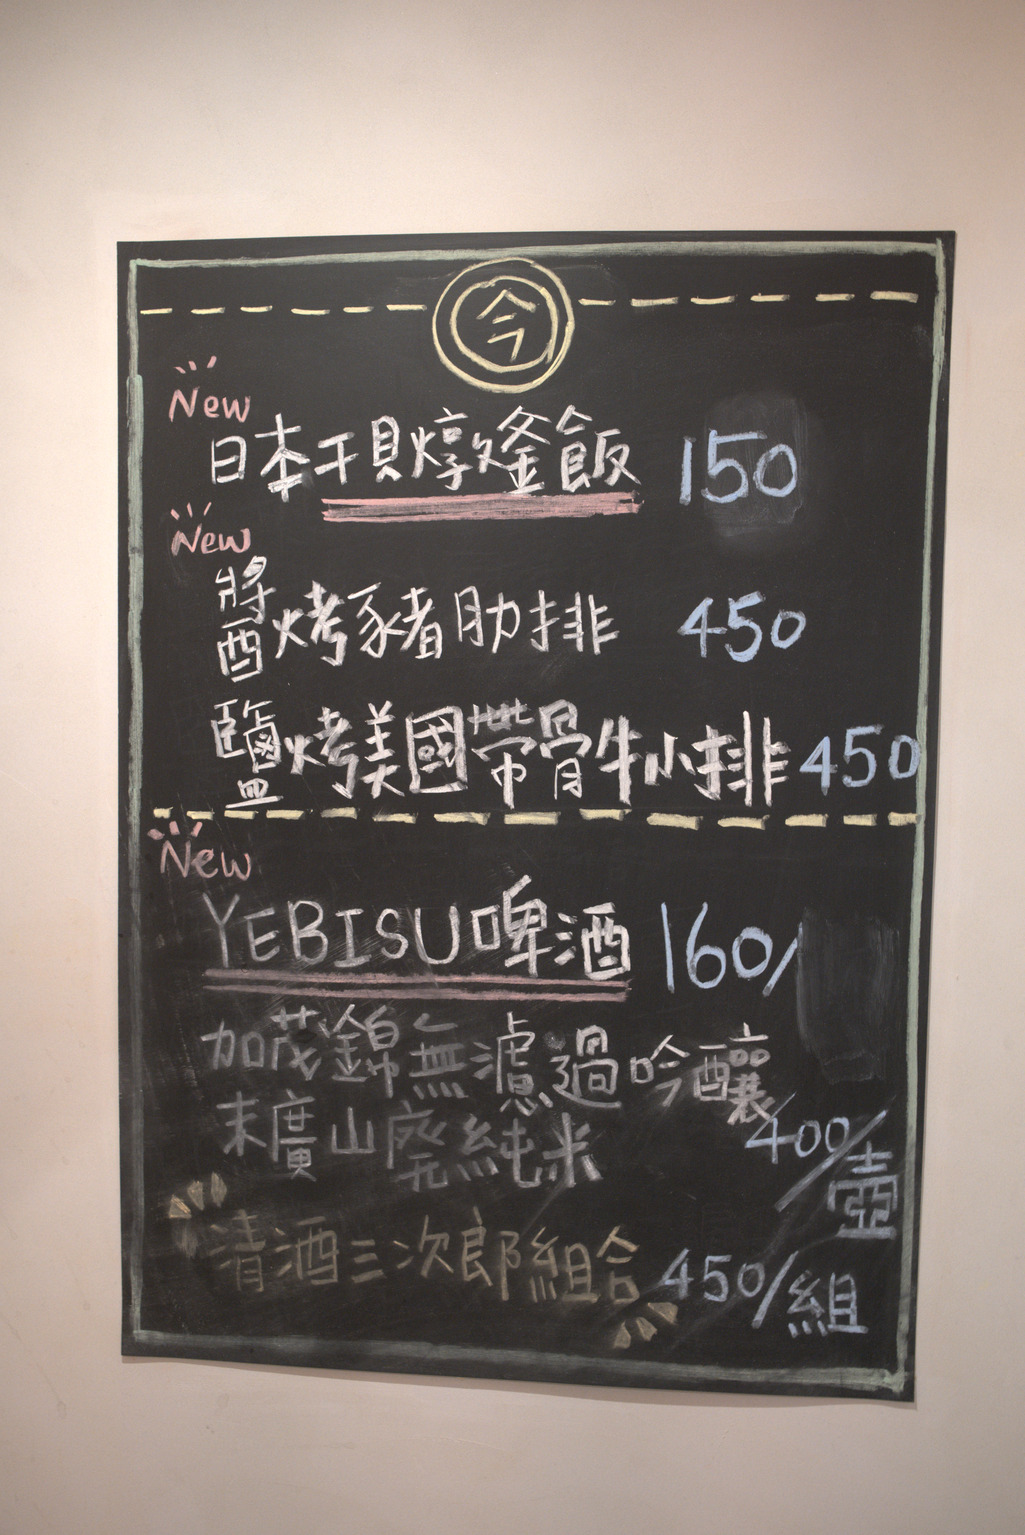 今
New
日本干貝燉釜飯 150
New
醬烤豬肋排 450
鹽烤美國帶骨牛小排 450
New
YEBISU啤酒 160/
加茂錦無濾過吟釀
末廣山廃純米 400/壺
清酒三次郎組合 450/組